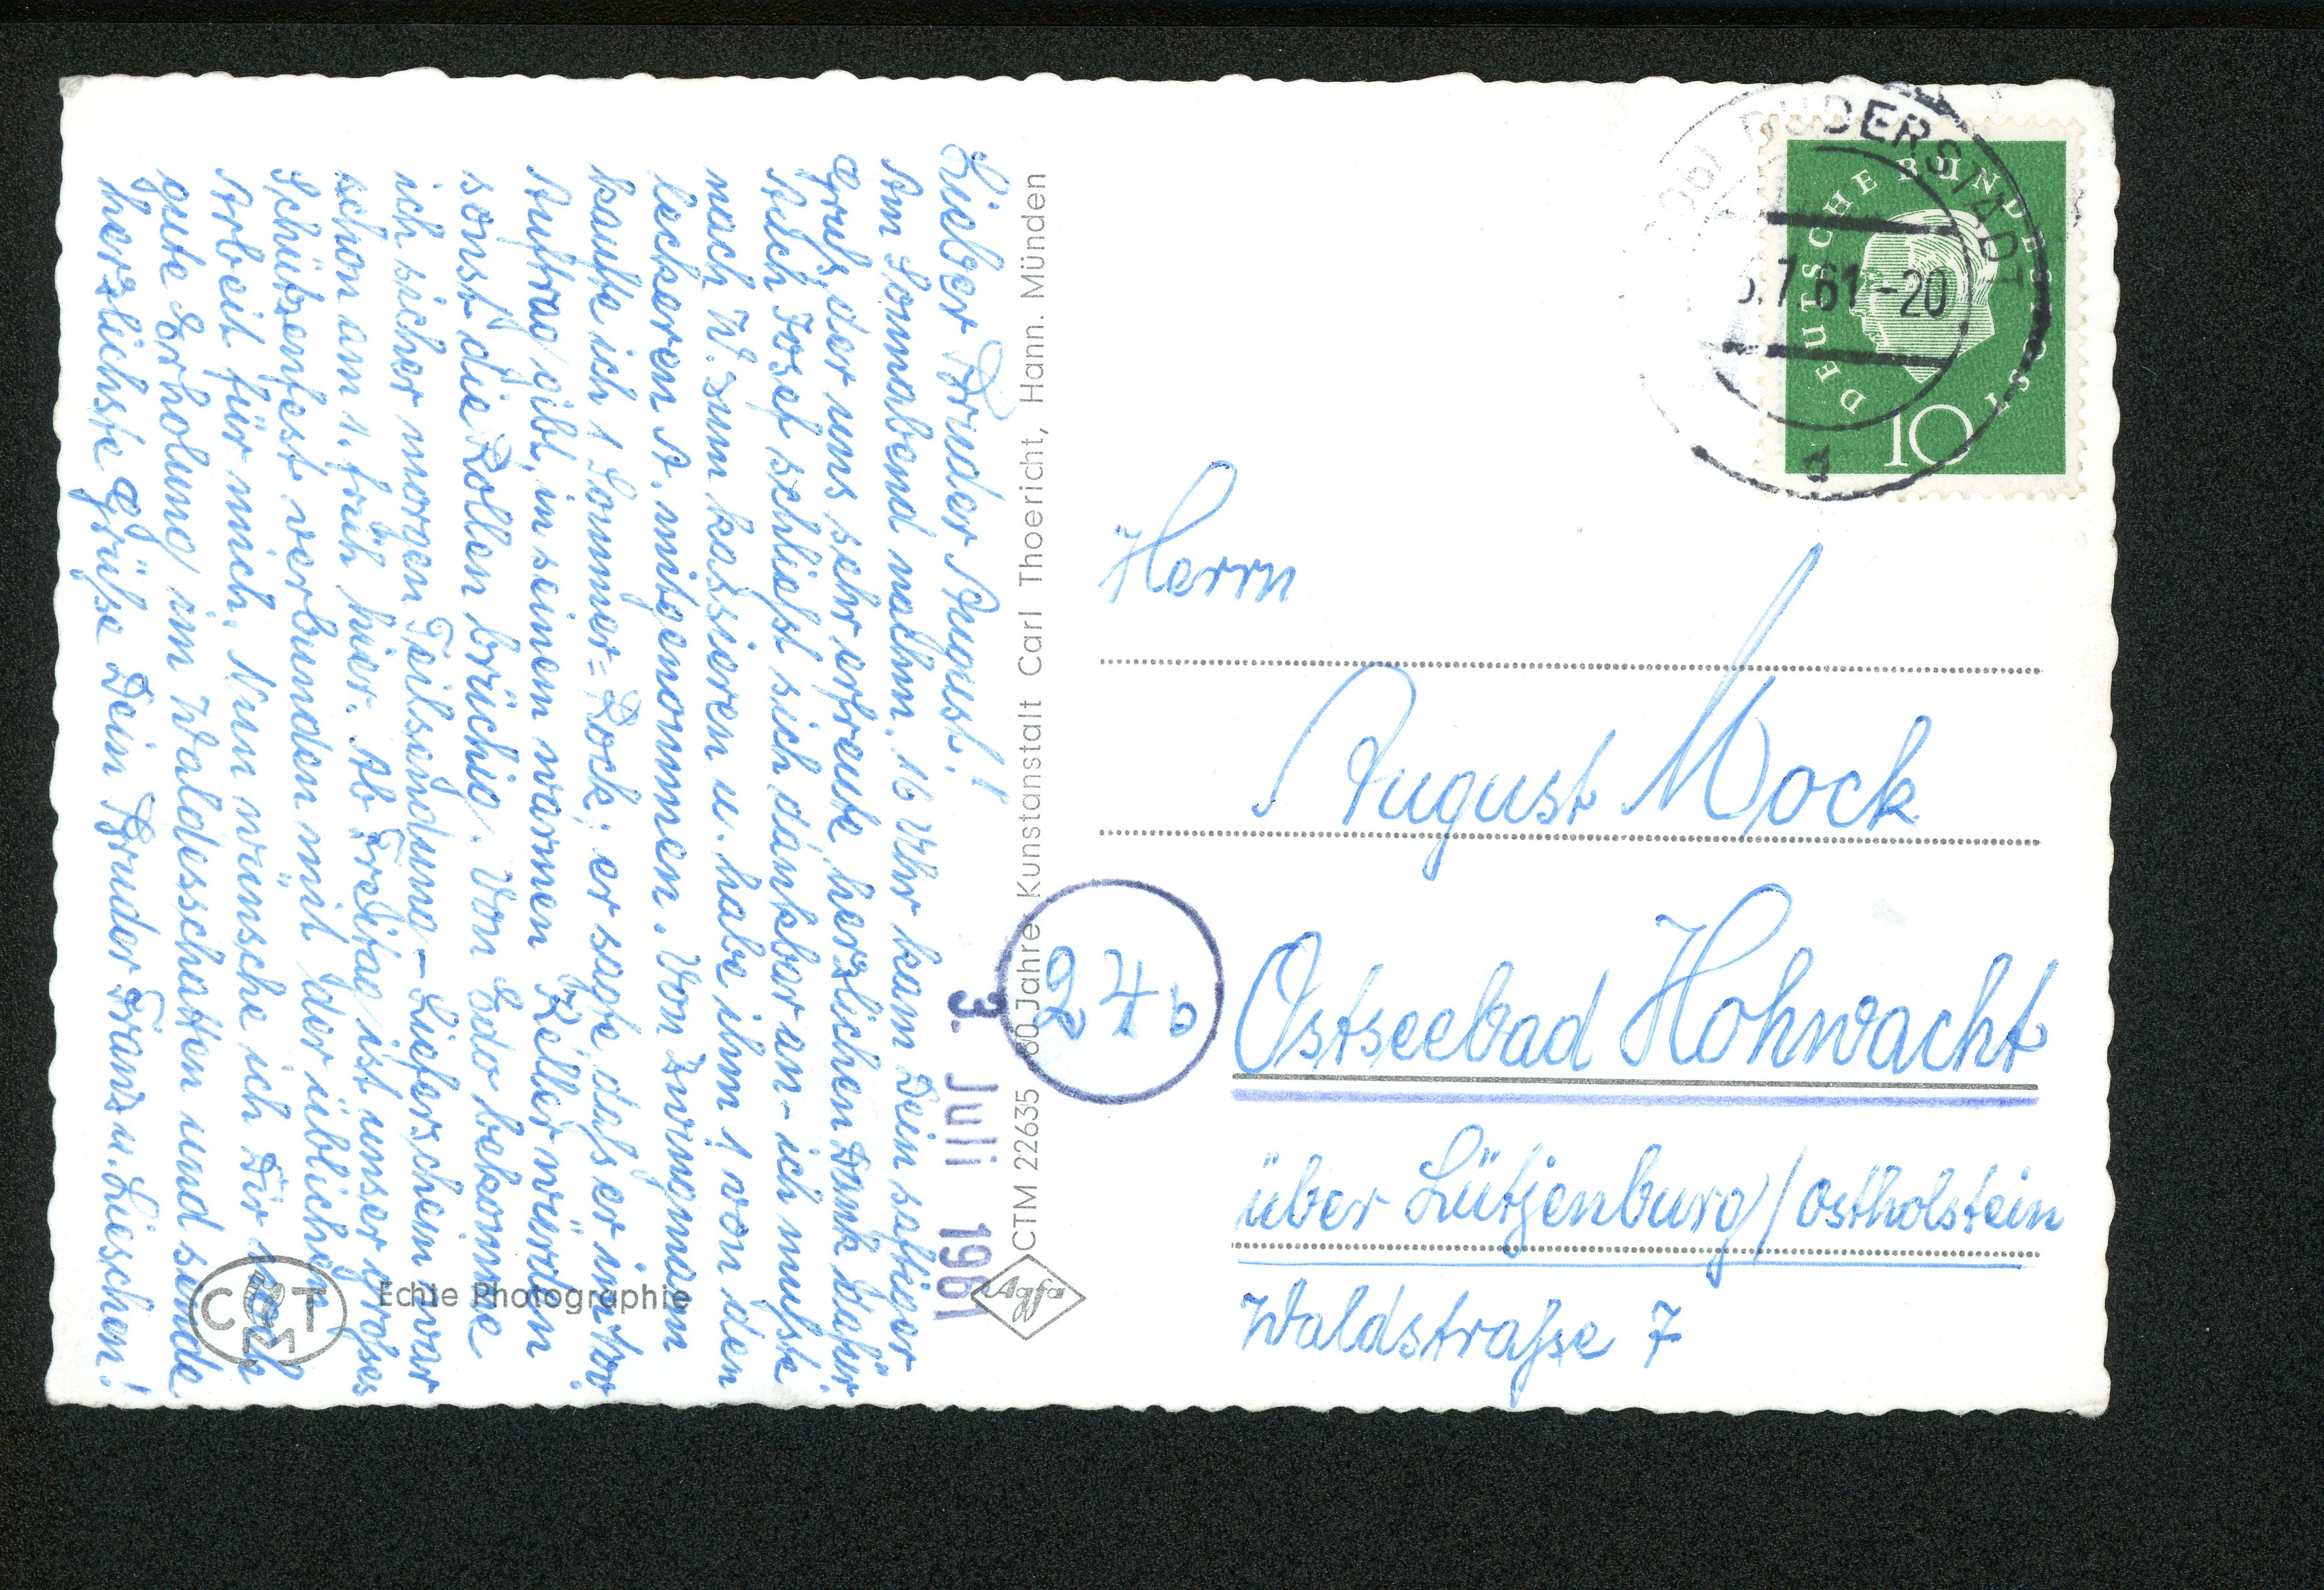 Lieber Bruder August!
Am Sonnabend nachm. 16 Uhr kam Dein saftiger
Gruß, der uns sehr erfreute herzlichen Dank dafür.
Auch Josef schließt sich dankbar an - ich mußte
nach W. zum kassieren u. habe ihm 1 von den
leckeren A. mitgenommen. Von
kaufte ich 1 Sommer=Rock; er sagte daß er im
Auftrag gibt, in seinem warmen Keller würden
sonst die Rollen brüchig. Von Edo bekomme
ich sicher morgen Teilsendung - Lieferschein war
schon am 1. früh hier. Ab Freitag ist unser großes
Schützenfest verbunden mit der üblichen
Arbeit für mich. Nun wünsche ich Dir noch
gute Erholung im Waldesschatten und sende
herzlichste Grüße Dein Bruder Franz u. Lieschen!
3. Juli 1961
CTM 22635 80 Jahre Kunstanstalt Carl Thoericht, Hann. Münden
Agfa
CTM
Echte Photographie
DUDERSTADT
.7.61-20
a
DEUTSCHE BUNDESPOST
10
Herrn
August Mock
24b
Ostseebad Hohwacht
über Lütjenburg/Ostholstein
Waldstraße 7